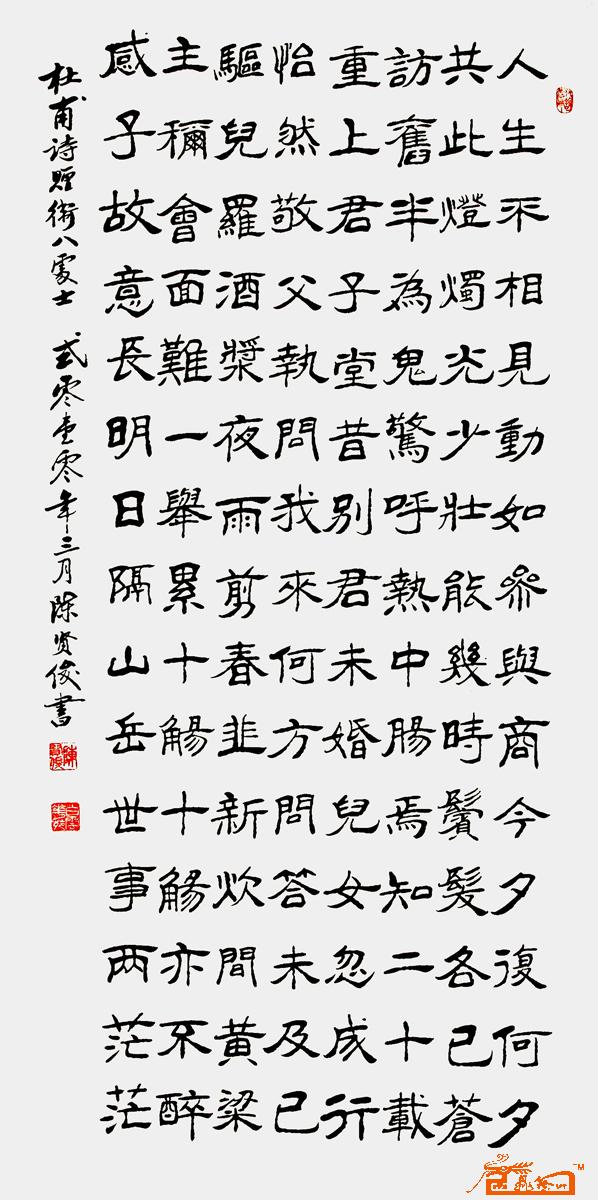 人生不相見動如參與商今夕復何夕
共此燈燭光少壯能幾時鬢髮各已蒼
訪舊半為鬼驚呼熱中腸焉知二十載
重上君子堂昔別君未婚兒女忽成行
怡然敬父執問我來何方問答未及已
驅兒羅酒漿夜雨剪春韭新炊間黃梁
主穪會面難一舉累十觴十觴亦不醉
感子故意長明日隔山岳世事两茫茫
杜甫詩贈衛八處士 弍零壹零年三月陳賢俊書